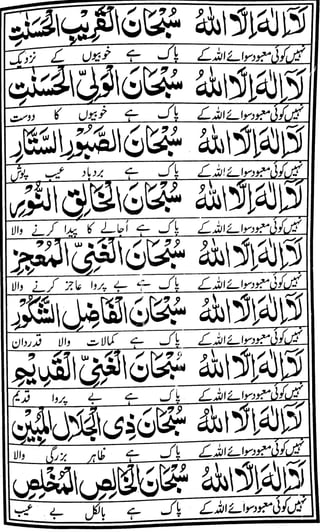 لَآ اِلٰهَ اِلَّا اللّٰهُ سُبْحَانَ الْقَرِیْبِ الْحَسَنٰتِ
نہیں کوئی معبود سوائے اللہ کے پاک ہے خوبیوں کے نزدیک
لَآ اِلٰهَ اِلَّا اللّٰهُ سُبْحَانَ الْوَلِیِّ الْحَسَنٰتِ
نہیں کوئی معبود سوائے اللہ کے پاک ہے خوبیوں کا دوست
لَآ اِلٰهَ اِلَّا اللّٰهُ سُبْحَانَ الصَّبُوْرِ السَّتَّارِ
نہیں کوئی معبود سوائے اللہ کے پاک ہے بردباد عیب پوش
لَآ اِلٰهَ اِلَّا اللّٰهُ سُبْحَانَ الْخَالِقِ النُّوْرِ
نہیں کوئی معبود سوائے اللہ کے پاک ہے اُجالے کا پیدا کرنے والا
لَآ اِلٰهَ اِلَّا اللّٰهُ سُبْحَانَ الْغَنِیِّ الْمُعْجِزِ
نہیں کوئی معبود سوائے اللہ کے پاک ہے بے پروا عاجز کرنے والا
لَآ اِلٰهَ اِلَّا اللّٰهُ سُبْحَانَ الْفَاضِلِ الشَّكُوْرِ
نہیں کوئی معبود سوائے اللہ کے پاک ہے کمالات والا قدردان
لَآ اِلٰهَ اِلَّا اللّٰهُ سُبْحَانَ الْغَنِیِّ الْقَدِیْمِ
نہیں کوئی معبود سوائے اللہ کے پاک ہے بے پروا قدیم
لَآ اِلٰهَ اِلَّا اللّٰهُ سُبْحَانَ ذِی الْجَلَالِ الْمُبِیْنِ
نہیں کوئی معبود سوائے اللہ کے پاک ہے ظاہر بزرگی والا
لَآ اِلٰهَ اِلَّا اللّٰهُ سُبْحَانَ الْخَالِصِ الْمُخْلِصِ
نہیں کوئی معبود سوائے اللہ کے پاک ہے بالکل بے عیب